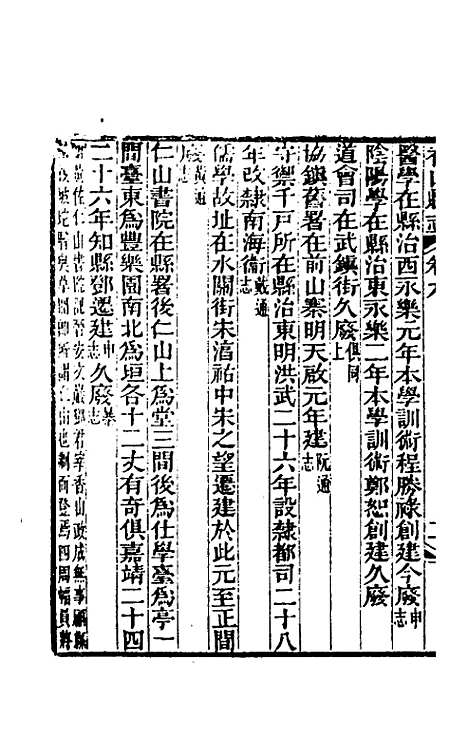 香山縣志 卷六
醫學在縣治西永樂元年本學訓術程勝祿創建今廢申志
陰陽學在縣治東永樂二年本學訓術鄭恕創建久廢
道會司在武鎮街久廢俱同上
協鎮舊署在前山寨明天啟元年建阮通志
守禦千戶所在縣治東明洪武二十六年設隸都司二十八
年改隸南海衞戴通志
儒學故址在水關街朱湻祐中朱之望遷建於此元至正間
廢黃通志
仁山書院在縣署後仁山上為堂三間後為仕學臺為亭一
間臺東為豐樂園南北為垣各十二丈有奇俱嘉靖二十四
二十六年知縣鄧遷建申志久廢暴志
黃佐仁山書院記晉安文巖鄧君宰香山政成無事顧縣